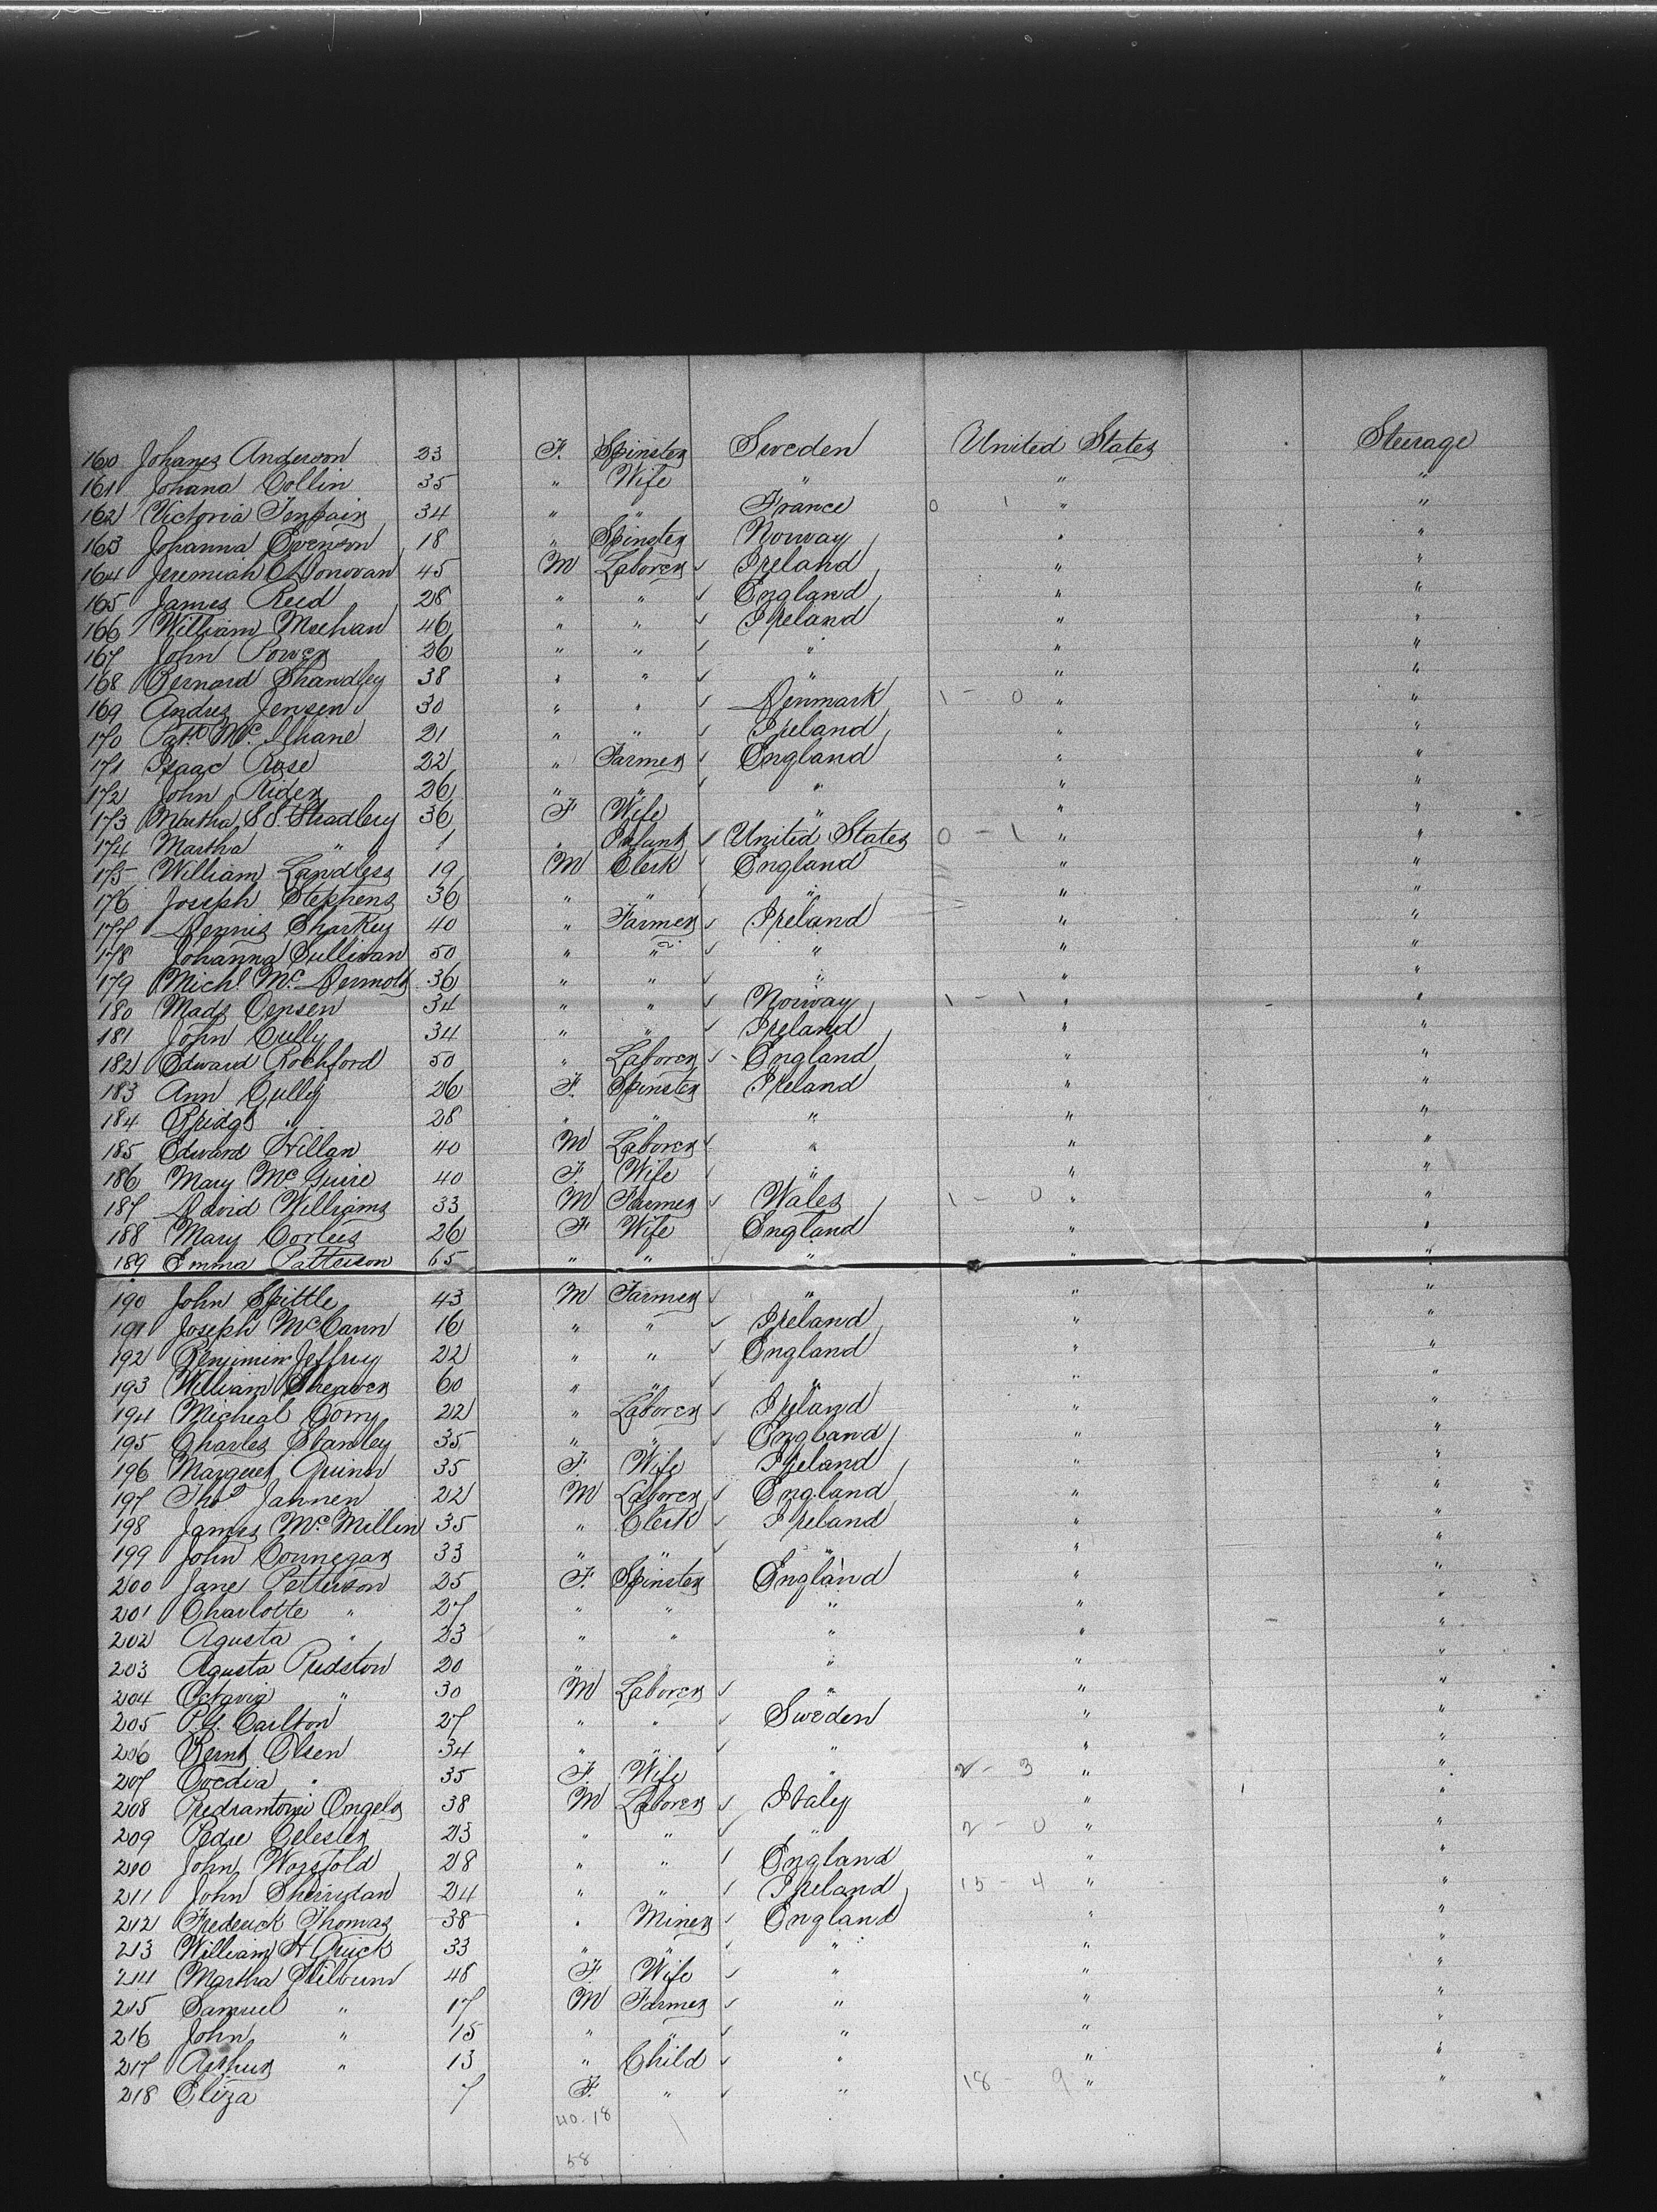 160 Johanes Anderson 23 F. Spinster Sweden United States Steerage
161 Johana Collin 35 " Wife " " "
162 Victoria 34 " " France 0 1 " "
163 Johanna Evenson 18 " Spinster Norway " "
164 Jeremiah O'Donovan 45 M Laborer ✓ Ireland " "
165 James Reed 28 " " ✓ England " "
166 William Meehan 46 " " ✓ Ireland " "
167 John Power 26 " " ✓ " " "
168 Bernard Shandley 38 " " ✓ " " "
169 Andres Jensen 30 " " ✓ Denmark 1 - 0 " "
170 Patk Mc Ilhane 21 " " ✓ Ireland " "
171 Isaac Rose 22 " Farmer ✓ England " "
172 John Rider 26 " " ✓ " " "
173 Martha S S Stradley 36 F Wife " " "
174 Martha " 1 " Infant ✓ United States 0 - 1 " "
175 William Landless 19 M Clerk ✓ England " "
176 Joseph Stephens 36 " " ✓ " " "
177 Dennis Sharkey 40 " Farmer ✓ Ireland " "
178 Johanna Sullivan 50 " " ✓ " " "
179 Michl Mc Dermott 36 " " ✓ " " "
180 Mads Jensen 34 " " ✓ Norway 1 - 1 " "
181 John Cully 34 " " ✓ Ireland " "
182 Edward Rochford 50 " Laborer ✓ England " "
183 Ann Gully 26 F. Spinster Ireland " "
184 Bridgt " 28 " " " " "
185 Edward Hillan 40 M Laborer ✓ " " "
186 Mary Mc Guire 40 F. Wife " " "
187 David Williams 33 M Farmer ✓ Wales 1 - 0 " "
188 Mary Corlees 26 F Wife England " "
189 Emma Patterson 65 " " " " "
190 John Spittle 43 M Farmer ✓ " " "
191 Joseph McCann 16 " " ✓ Ireland " "
192 Benjimin Jeffrey 22 " " ✓ England " "
193 William Shearer 60 " " ✓ " " "
194 Micheal Corry 22 " Laborer ✓ Ireland " "
195 Charles Stanley 35 " " ✓ England " "
196 Margret Quinn 35 F. Wife Ireland " "
197 Thos Jannen 22 M Laborer ✓ England " "
198 James Mc Millen 35 " Clerk ✓ Ireland " "
199 John Connegar 33 " " ✓ " " "
200 Jane Petterson 25 F. Spinster England " "
201 Charlotte " 27 " " " " "
202 Agusta " 23 " " " " "
203 Agusta Predston 20 " " " " "
204 Octavia " 30 M Laborer ✓ " " "
205 P.G. Carlton 27 " " ✓ Sweden " "
206 Bernt Olsen 34 " " ✓ " " "
207 " 35 F. Wife " 2 - 3 " "
208 Angelo 38 M Laborer ✓ Italy " "
209 Pedre Celester 23 " " ✓ " 2 - 0 " "
210 John Worsfold 28 " " ✓ England " "
211 John Sherridan 24 " " ✓ Ireland 15 - 4 " "
212 Frederick Thomas 38 " Miner ✓ England " "
213 William H Quick 33 " " ✓ " " "
214 Martha Milburn 48 F. Wife ✓ " " "
215 Samuel " 17 M Farmer ✓ " " "
216 John " 15 " " ✓ " " "
217 Arthur " 13 " Child ✓ " " "
218 Eliza 7 F. " ✓ " 18 - 9 " "
40-18
58